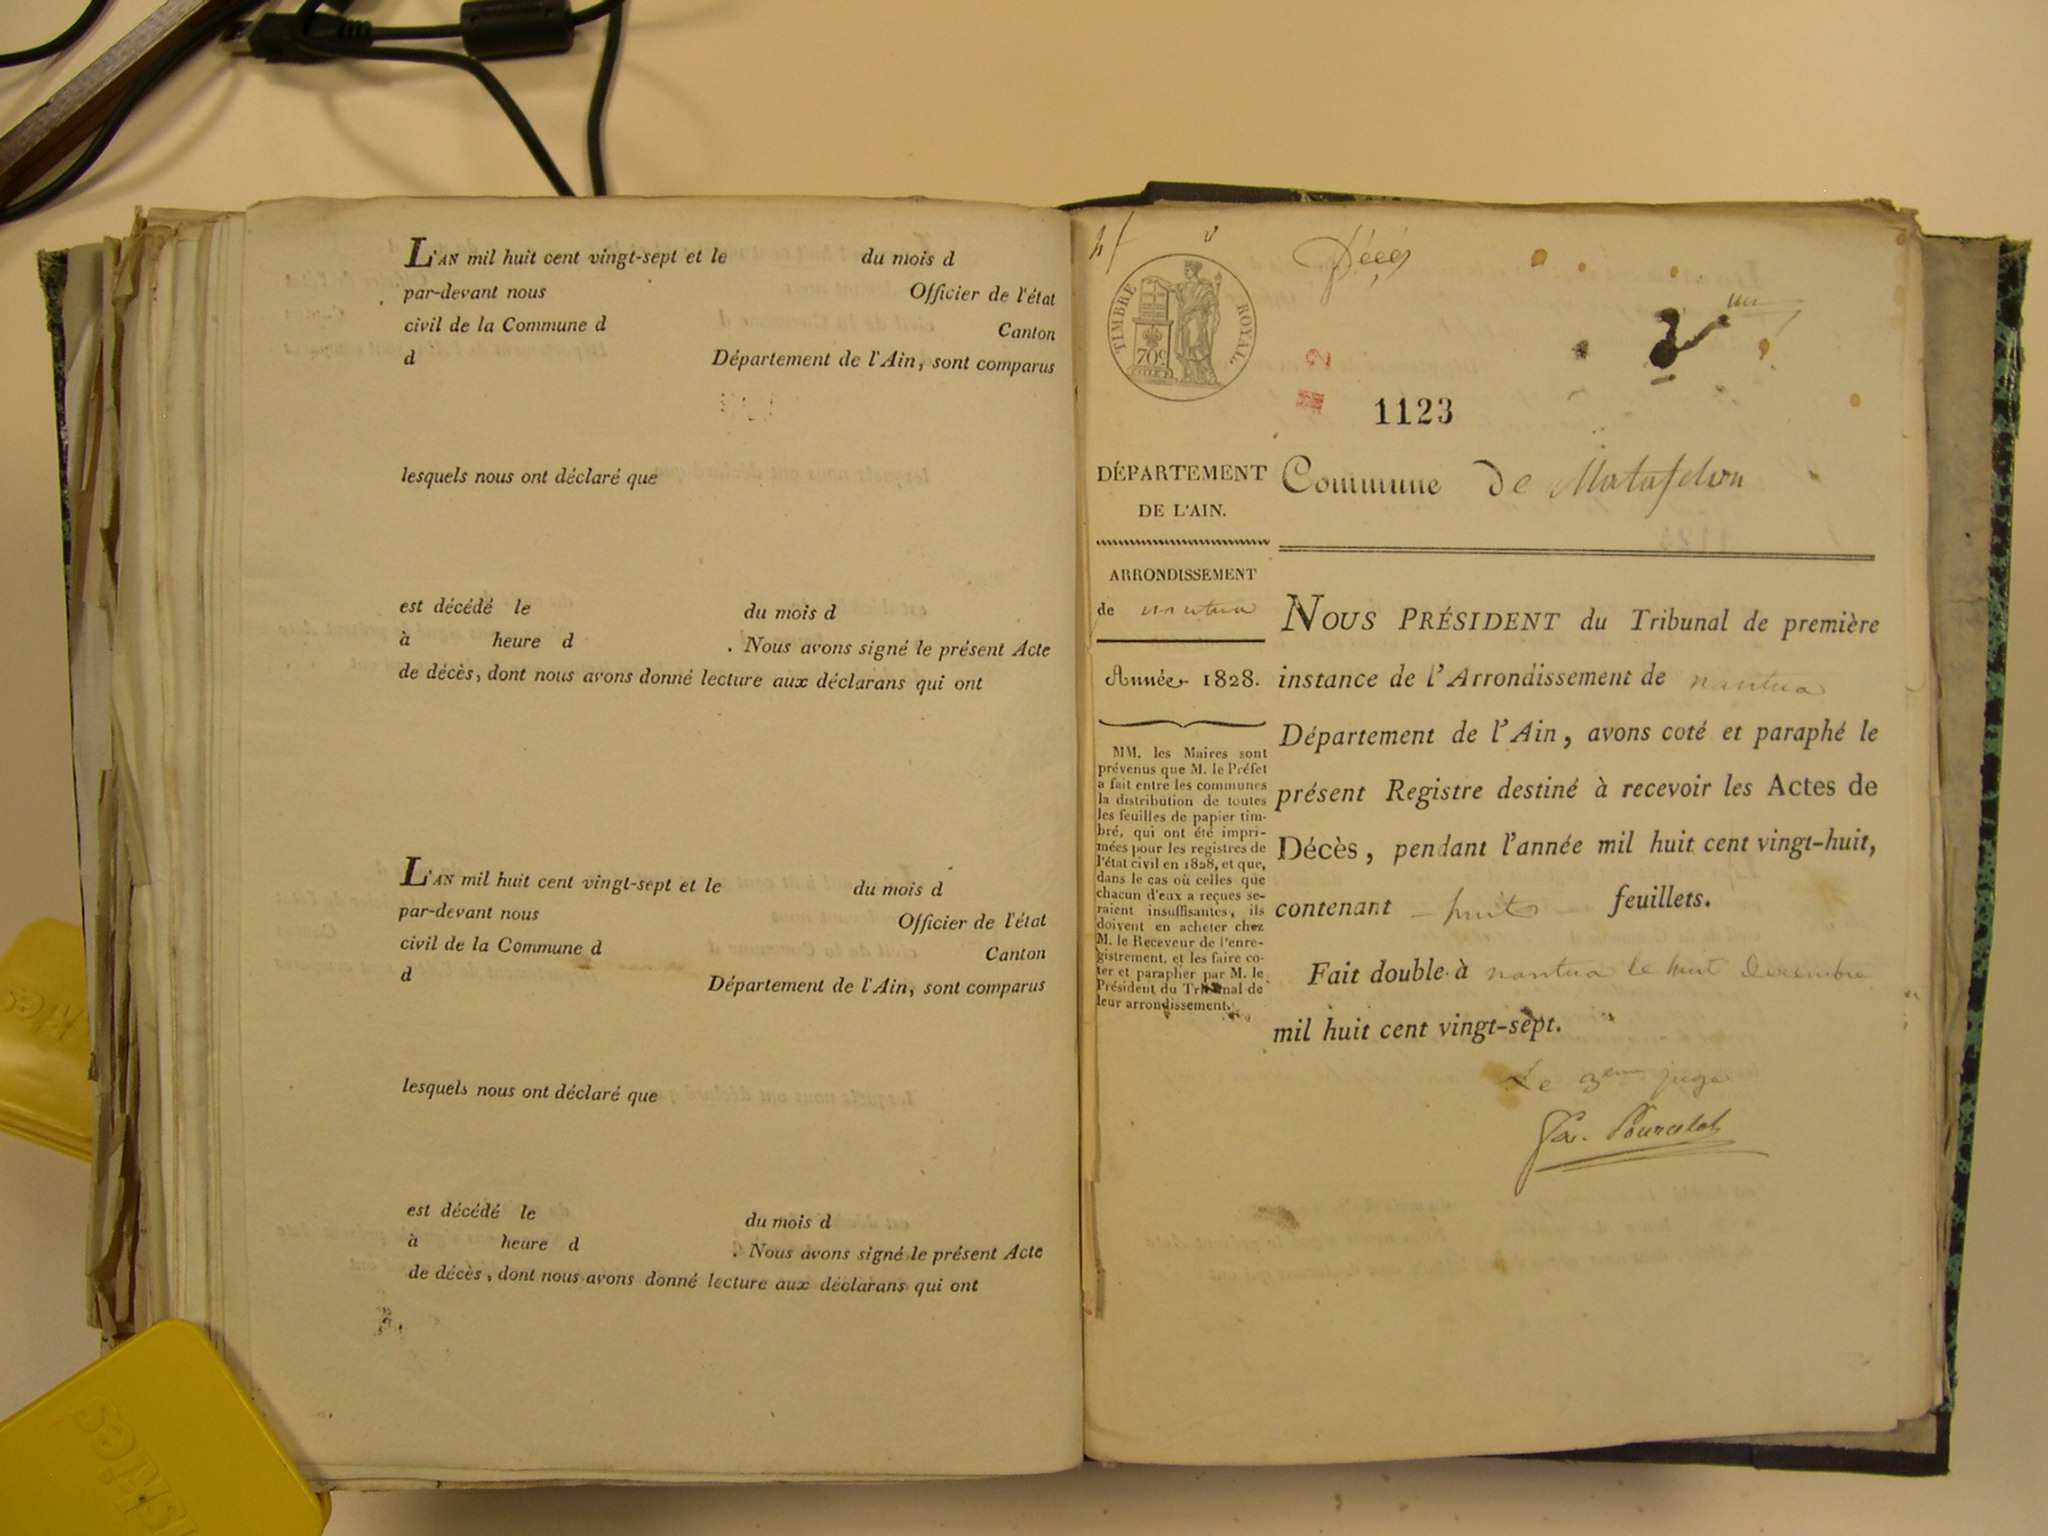 L'AN mil huit cent vingt-sept et le du mois d
par-devant nous Officier de l'état
civil de la Commune d Canton
d Département de l'Ain, sont comparus
lesquels nous ont déclaré que
est décédé le du mois d
à heure d . Nous avons signé le présent Acte
de décès, dont nous avons donné lecture aux déclarans qui ont
L'AN mil huit cent vingt-sept et le du mois d
par-devant nous Officier de l'état
civil de la Commune d Canton
d Département de l'Ain, sont comparus
lesquels nous ont déclaré que
est décédé le du mois d
à heure d . Nous avons signé le présent Acte
de décès, dont nous avons donné lecture aux déclarans qui ont
Décés
TIMBRE ROYAL
70c
1123
DÉPARTEMENT
DE L'AIN.
ARRONDISSEMENT
de nantua
Année 1828.
MM. les Maires sont
prévenus que M. le Préfet
a fait entre les communes
la distribution de toutes
les feuilles de papier tim-
bré, qui ont été impri-
mées pour les registres de
l'état civil en 1828, et que,
dans le cas où celles que
chacun d'eux a reçues se-
raient insuffisantes, ils
doivent en acheter chez
M. le Receveur de l'enre-
gistrement, et les faire co-
ter et parapher par M. le
Président du Tribunal de
leur arrondissement.
Commune de Matafelon
NOUS PRÉSIDENT du Tribunal de première
instance de l'Arrondissement de nantua
Département de l'Ain, avons coté et paraphé le
présent Registre destiné à recevoir les Actes de
Décès, pendant l'année mil huit cent vingt-huit,
contenant huit feuillets.
Fait double à nantua le huit Decembre
mil huit cent vingt-sept.
Le 3eme juge
Pourcelot